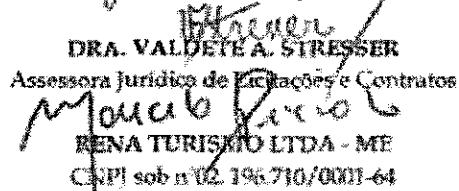 DRA. VALDETE A. STRESSER
Assessora Jurídica de Licitações e Contratos
RENA TURISMO LTDA - ME
CNPJ sob nº 02. 196.710/0001-64